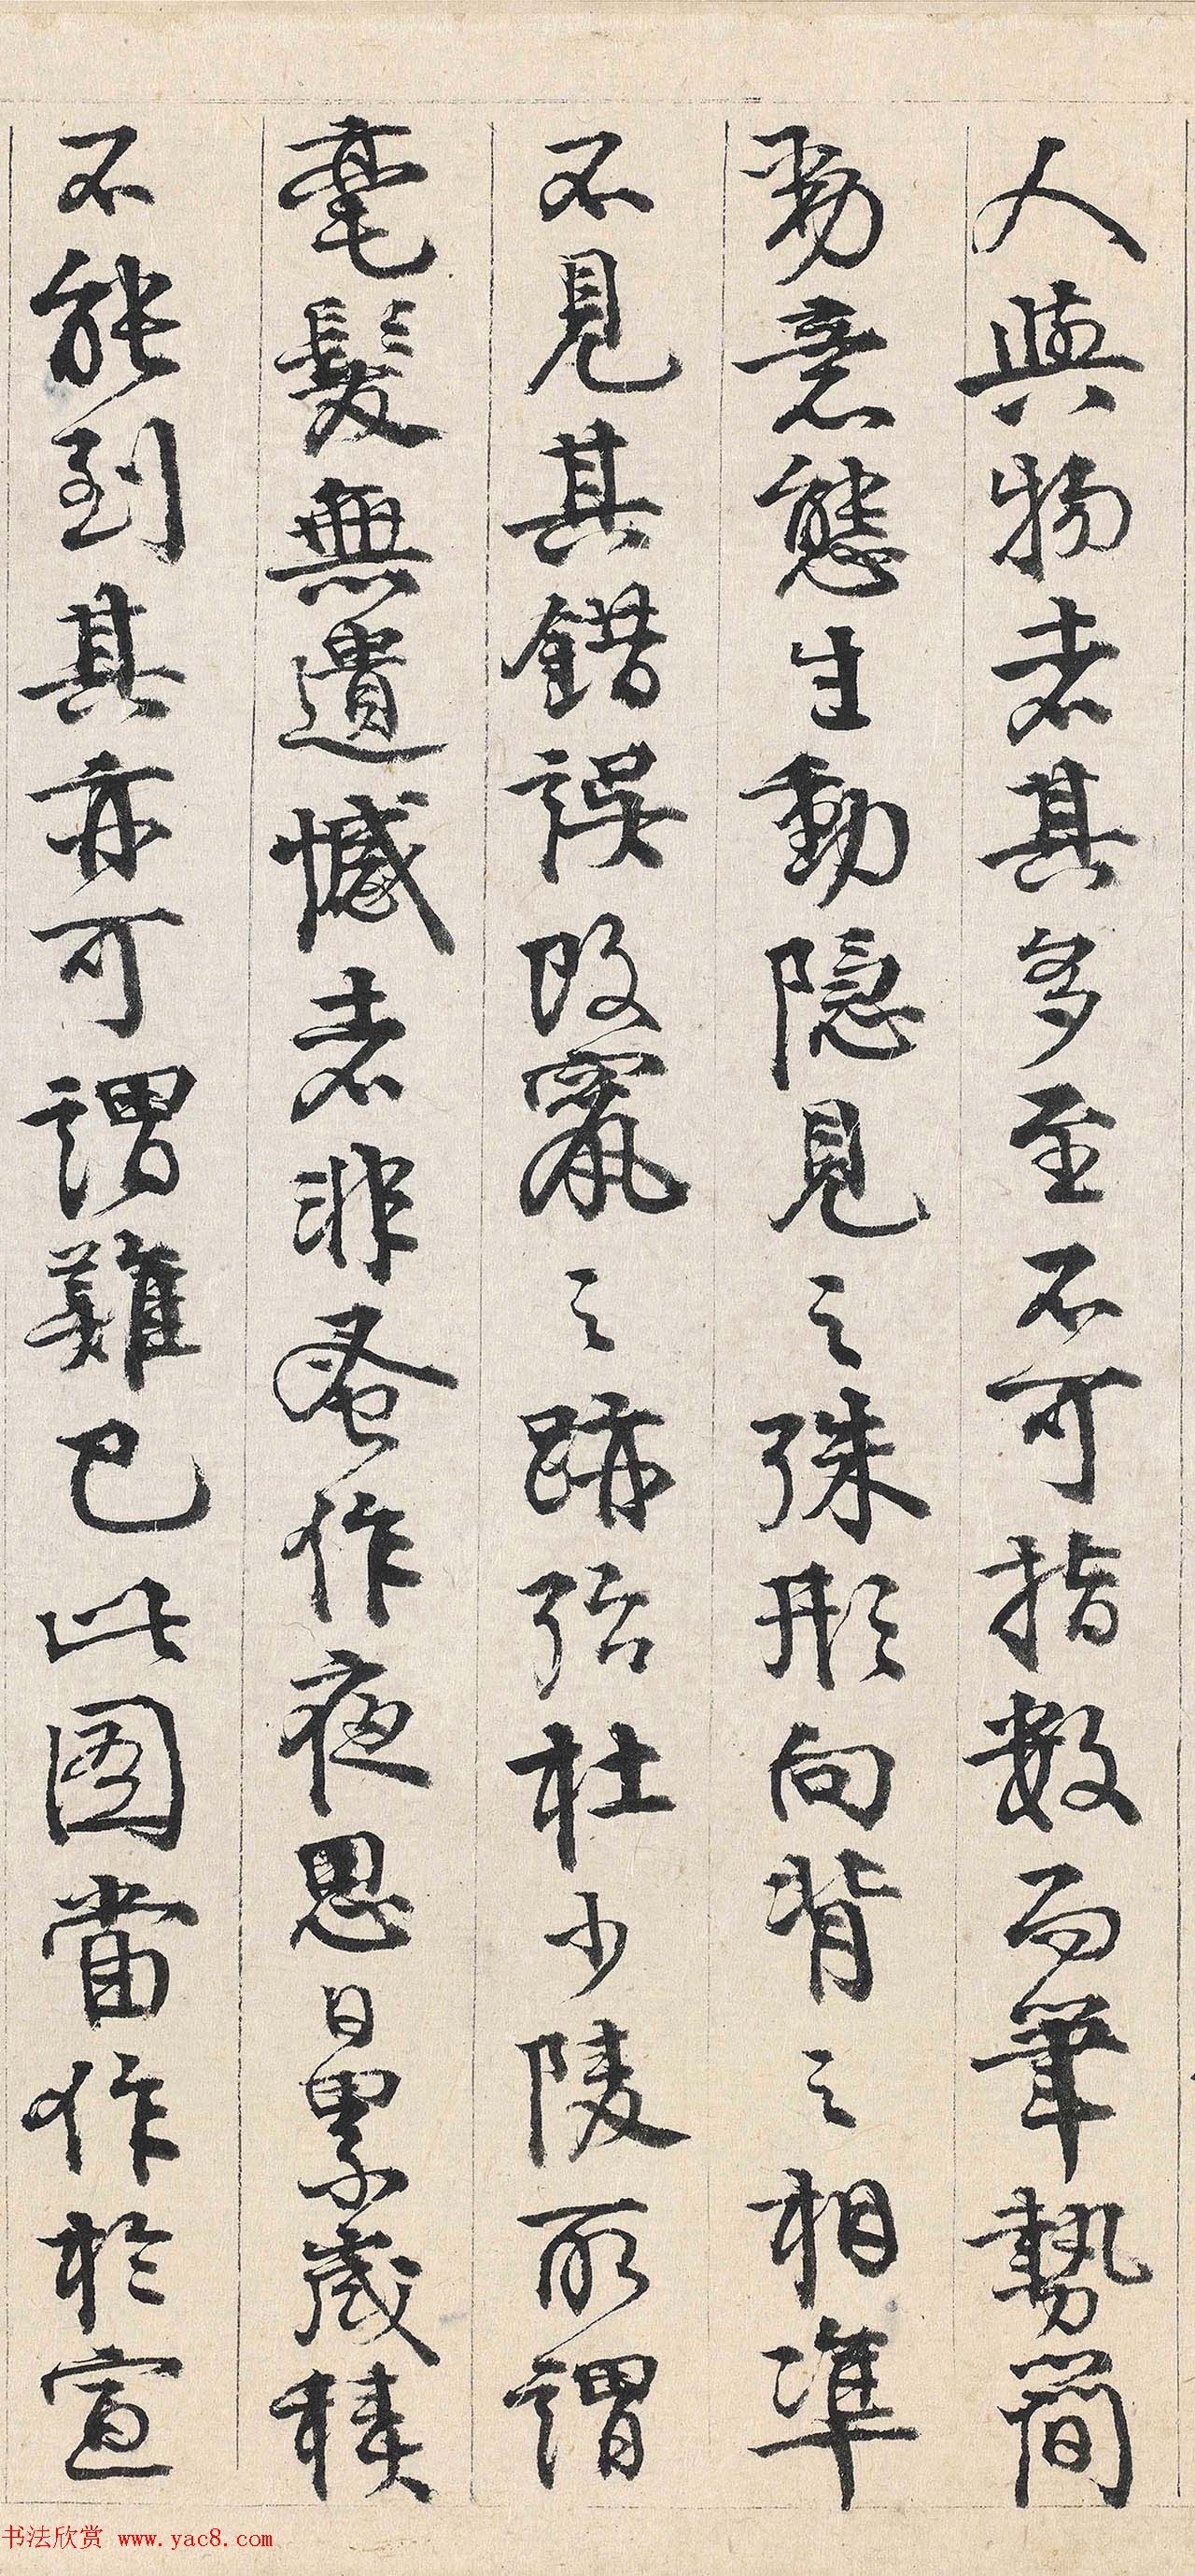 人與物者其多至不可指數而筆勢簡
勁意態生動隱見之殊形向背之相準
不見其錯誤改竄之跡殆杜少陵所謂
毫髮無遺憾者非蚤作夜思日累歲積
不能到其亦可謂難已此圖當作於宣
书法欣赏 www.yac8.com